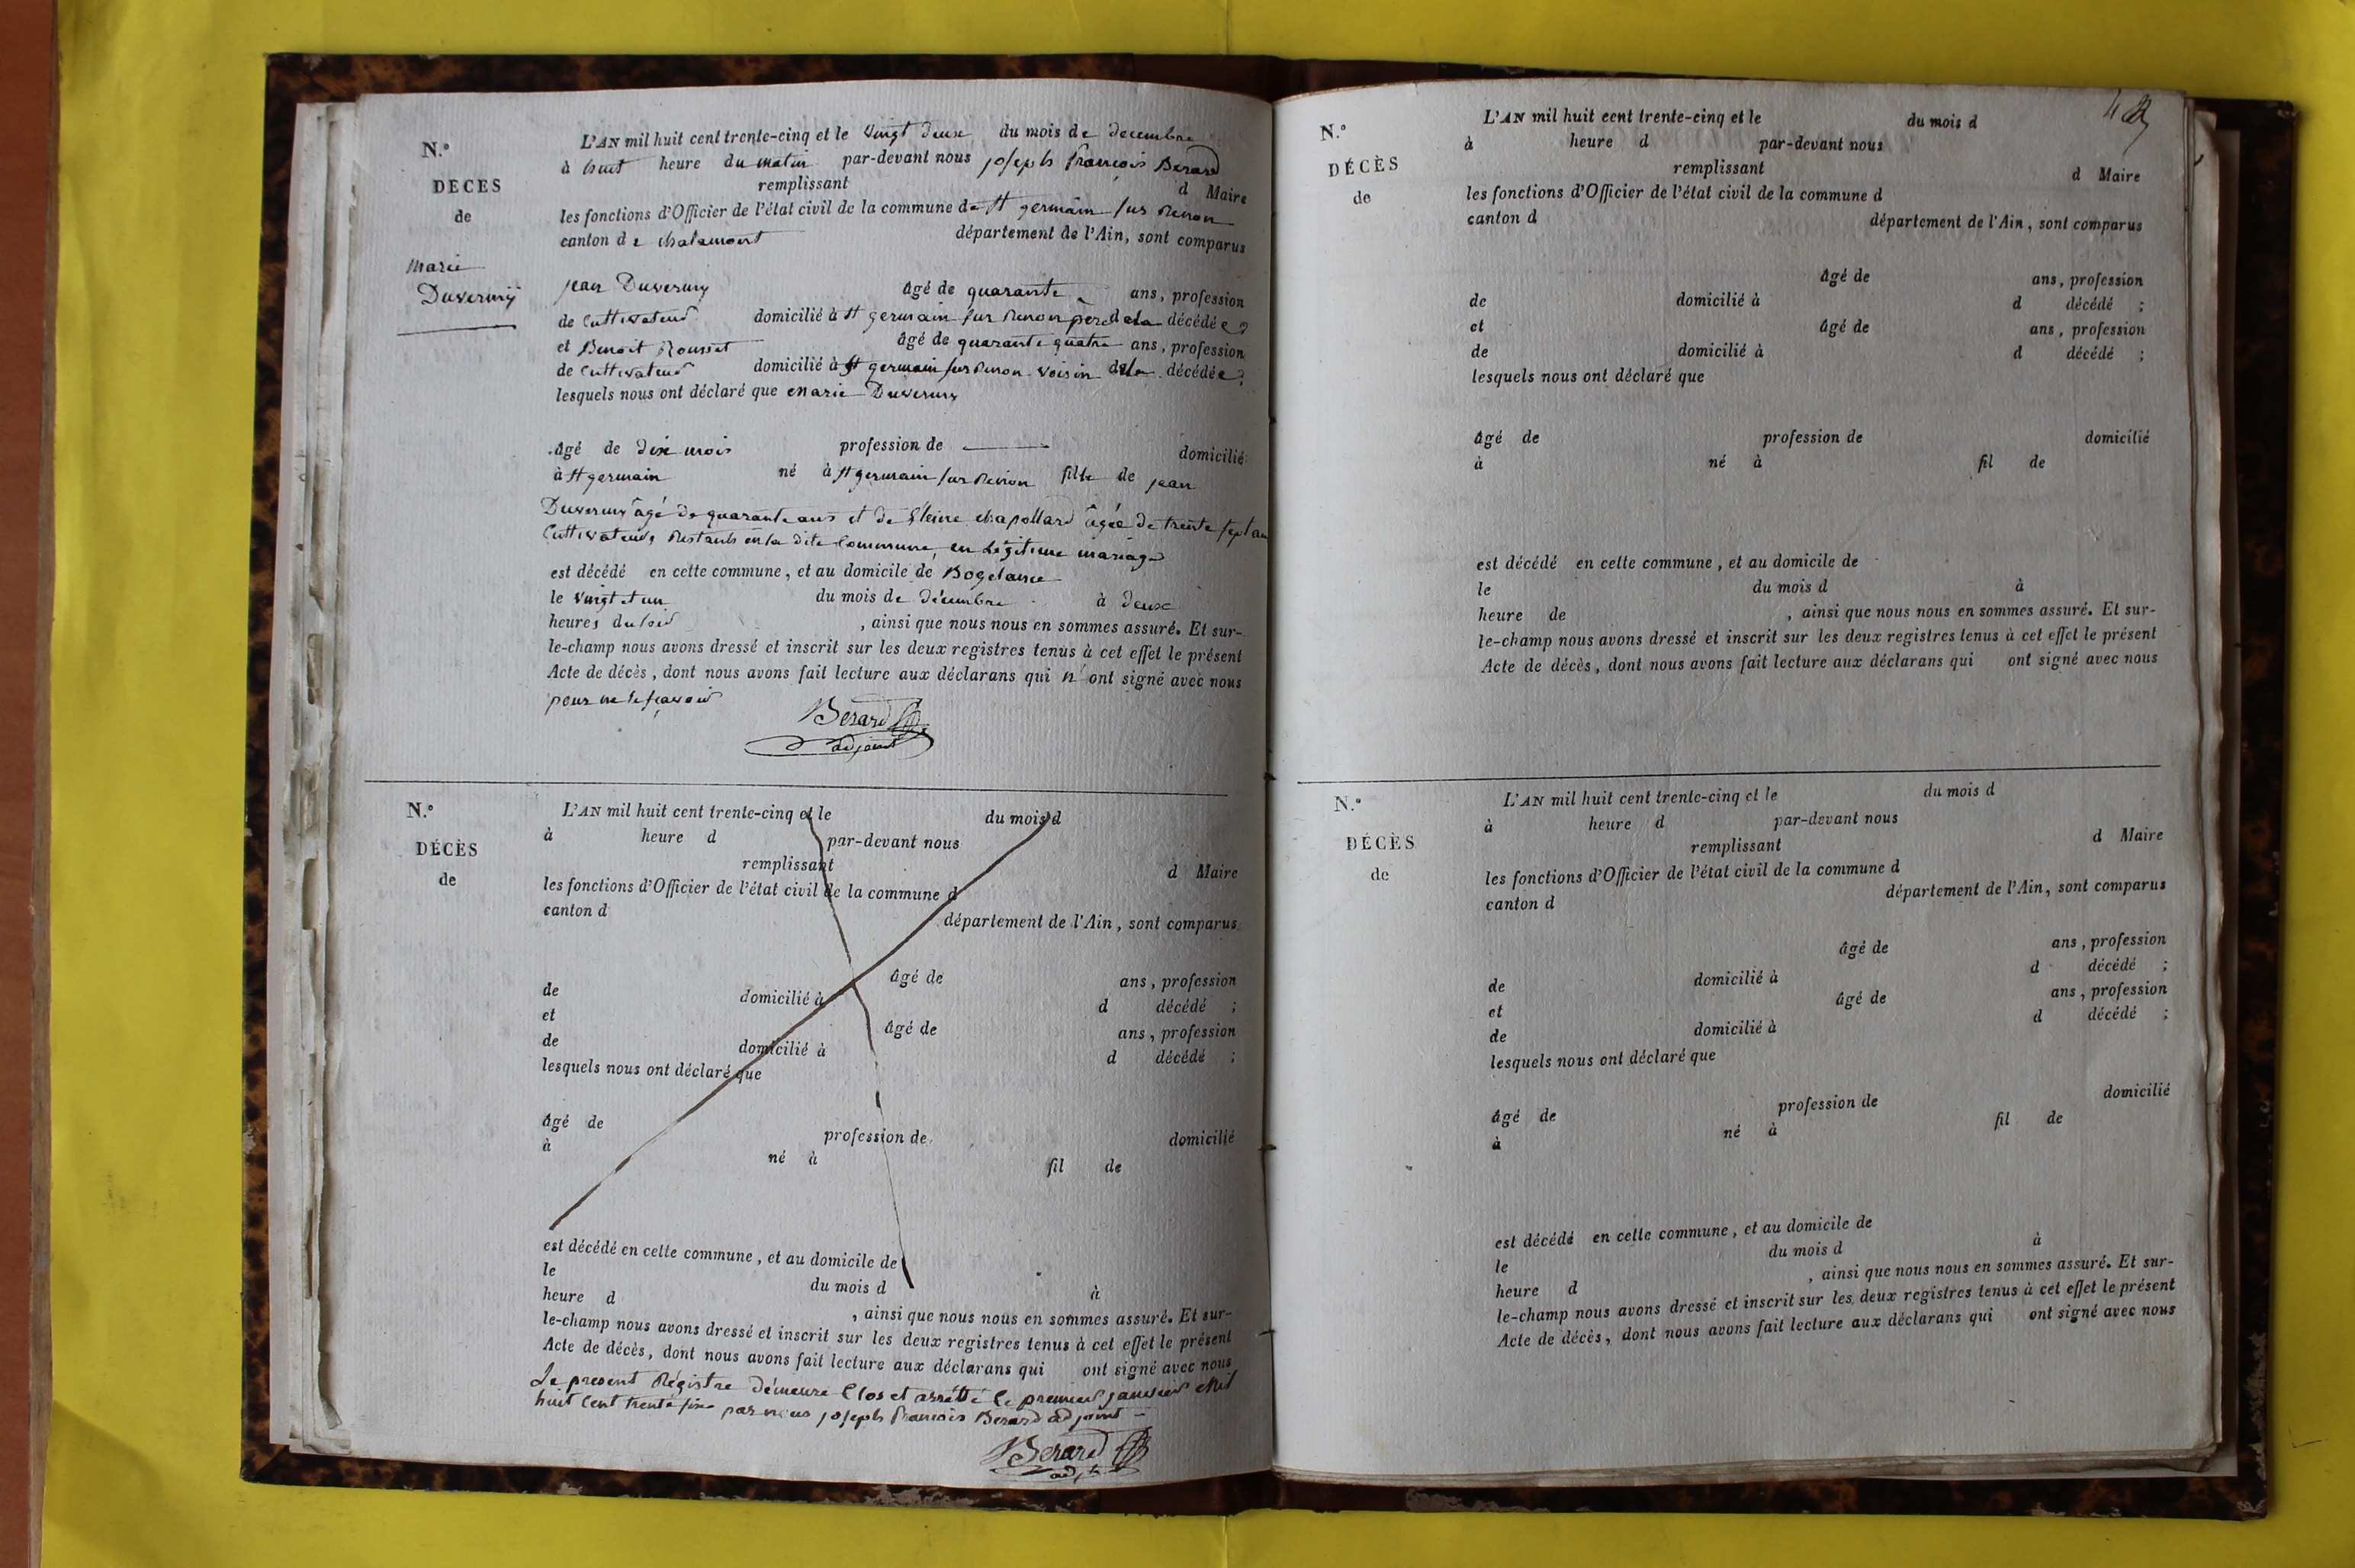 N.°
DECES
de
Marie
Duverny
L'AN mil huit cent trente-cinq et le vingt deux du mois de decembre
à huit heure du matin par-devant nous joseph françois Berard
remplissant d Maire
les fonctions d'Officier de l'état civil de la commune de St germain sur Renon
canton de chalamont département de l'Ain, sont comparus
jean Duverny âgé de quarante ans, profession
de Cultivateur domicilié à St germain sur Renon père de la décédée
et Benoit Rousset âgé de quarante quatre ans, profession
de Cultivateur domicilié à St germain sur Renon voisin de la décédée
lesquels nous ont déclaré que marie Duverny
âgé de dix mois profession de domicilié
à St germain né à St germain sur Renon fille de jean
Duverny âgé de quarante ans et de chapollard âgée de trente sept ans
Cultivateurs Restants en la dite Commune, en Légitime mariage
est décédé en cette commune, et au domicile de
le vingt et un du mois de décembre à deux
heures du soir, ainsi que nous nous en sommes assuré. Et sur-
le-champ nous avons dressé et inscrit sur les deux registres tenus à cet effet le présent
Acte de décès, dont nous avons fait lecture aux déclarans qui n' ont signé avec nous
pour ne le sçavoir
Berard
adjoint
N.°
DÉCÈS
de
L'AN mil huit cent trente-cinq et le du mois d
à heure d par-devant nous
remplissant d Maire
les fonctions d'Officier de l'état civil de la commune d
canton d département de l'Ain, sont comparus
âgé de ans, profession
de domicilié à d décédé ;
et âgé de ans, profession
de domicilié à d décédé ;
lesquels nous ont déclaré que
âgé de profession de domicilié
à né à fil de
est décédé en cette commune, et au domicile de
le du mois d à
heure d , ainsi que nous nous en sommes assuré. Et sur-
le-champ nous avons dressé et inscrit sur les deux registres tenus à cet effet le présent
Acte de décès, dont nous avons fait lecture aux déclarans qui ont signé avec nous
Le present Régistre démeure Clos et arrêtté le premier janvier Mil
huit Cent trente six par nous joseph francois Berard adjoint
Berard
adjt
N.°
DÉCÈS
de
L'AN mil huit cent trente-cinq et le du mois d
à heure d par-devant nous
remplissant d Maire
les fonctions d'Officier de l'état civil de la commune d
canton d département de l'Ain, sont comparus
âgé de ans, profession
de domicilié à d décédé ;
et âgé de ans, profession
de domicilié à d décédé ;
lesquels nous ont déclaré que
âgé de profession de domicilié
à né à fil de
est décédé en cette commune, et au domicile de
le du mois d à
heure de , ainsi que nous nous en sommes assuré. Et sur-
le-champ nous avons dressé et inscrit sur les deux registres tenus à cet effet le présent
Acte de décès, dont nous avons fait lecture aux déclarans qui ont signé avec nous
N.°
DÉCÈS
de
L'AN mil huit cent trente-cinq et le du mois d
à heure d par-devant nous
remplissant d Maire
les fonctions d'Officier de l'état civil de la commune d
canton d département de l'Ain, sont comparus
âgé de ans, profession
de domicilié à d décédé ;
et âgé de ans, profession
de domicilié à d décédé ;
lesquels nous ont déclaré que
âgé de profession de domicilié
à né à fil de
est décédé en cette commune, et au domicile de
le du mois d à
heure d , ainsi que nous nous en sommes assuré. Et sur-
le-champ nous avons dressé et inscrit sur les deux registres tenus à cet effet le présent
Acte de décès, dont nous avons fait lecture aux déclarans qui ont signé avec nous